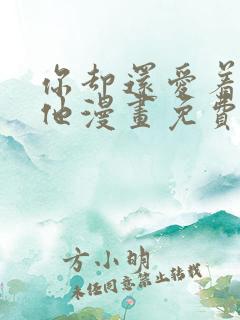 你却还爱着
他漫画免费
方小明
未经同意禁止转载